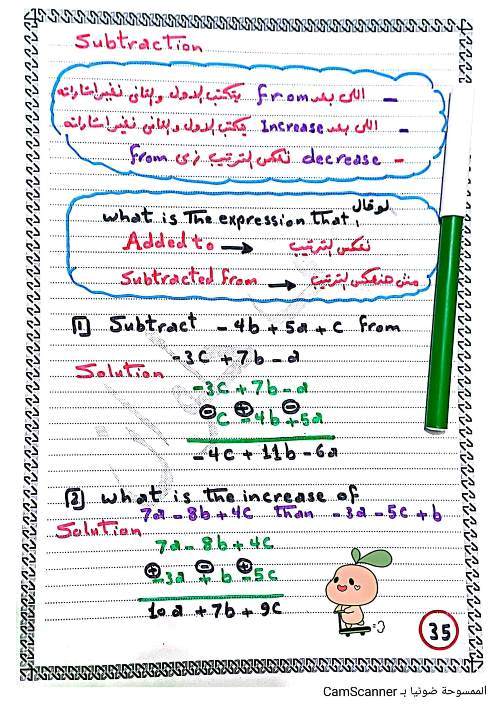 Subtraction
- اللى بعد from يتكتب الاول والتانى نغير اشاراته
- اللى بعد Increase يكتب الاول والتانى نغير اشاراته
- decrease نعكس الترتيب زى from
لو قال
what is The expression that
Added to → نعكس الترتيب
Subtracted from → مش هنعكس الترتيب
1 Subtract -4b + 5a + c from
-3c + 7b - a
Solution
-3c + 7b - a
⊖ c ⊕ -4b ⊖ +5a
-4c + 11b - 6a
2 what is the increase of
7a - 8b + 4c than -3a - 5c + b
Solution
7a - 8b + 4c
⊕ -3a ⊖ + b ⊕ -5c
10a + 7b + 9c
35
الممسوحة ضوئيا بـ CamScanner